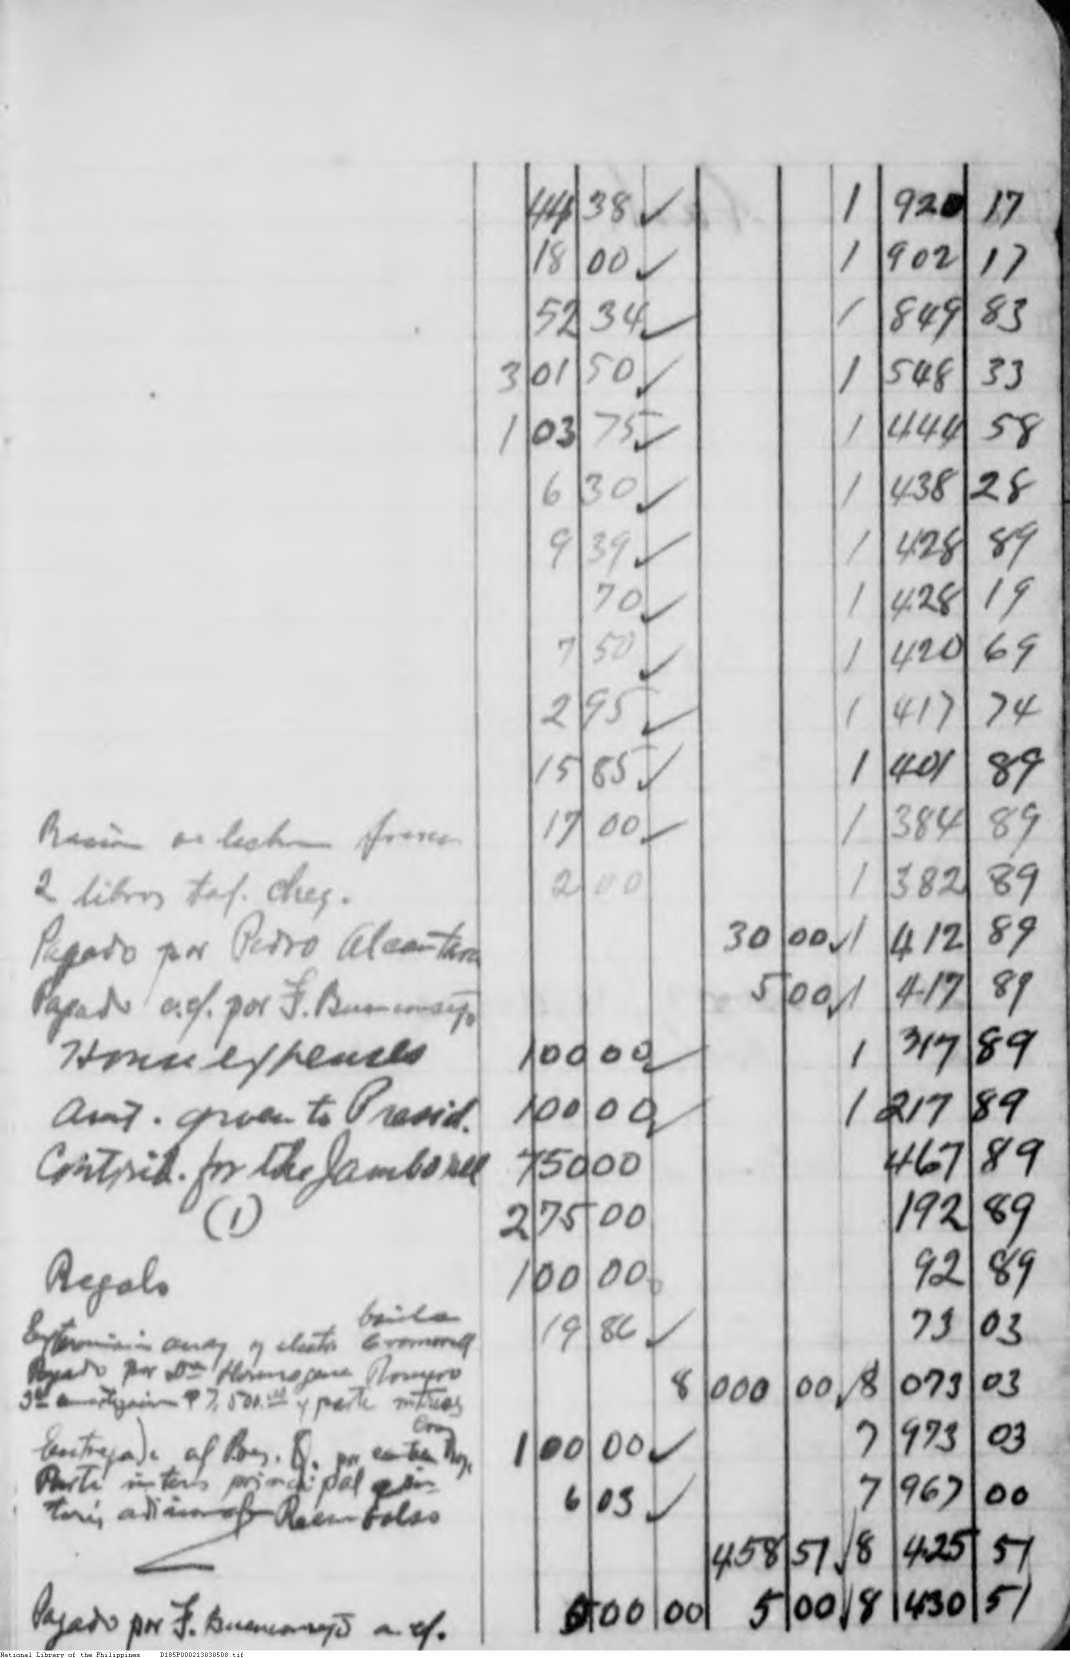 44 38 ✓ 1 920 17
18 00 ✓ 1 902 17
52 34 ✓ 1 849 83
3 01 50 ✓ 1 548 33
1 03 75 ✓ 1 444 58
6 30 ✓ 1 438 28
9 39 ✓ 1 428 89
70 ✓ 1 428 19
7 50 ✓ 1 420 69
2 95 ✓ 1 417 74
15 85 ✓ 1 401 89
17 00 ✓ 1 384 89
2 libros taf. cheq. 2 00 1 382 89
Pagado por Pedro Alcantara 30 00 ✓ 1 412 89
Pagado a.cf. por F. Buenconsejo 5 00 ✓ 1 417 89
House expenses 100 00 ✓ 1 317 89
Amt. given to Presid. 100 00 ✓ 1 217 89
Contrib. for the Jamboree 750 00 467 89
(1) 275 00 192 89
Regalo 100 00 92 89
19 86 ✓ 73 03
Pagado por Hermogena Romero
8 000 00 ✓ 8 073 03
3a amortizacion ₱7,500.00 y parte
Entregado al Pres. Q. por 100 00 ✓ 7 973 03
Parte principal
6 03 ✓ 7 967 00
Reembolso
458 51 ✓ 8 425 51
Pagado por F. Buenconsejo a cf. 500 00 5 00 ✓ 8 430 51
National Library of the Philippines D185P000213838508.tif